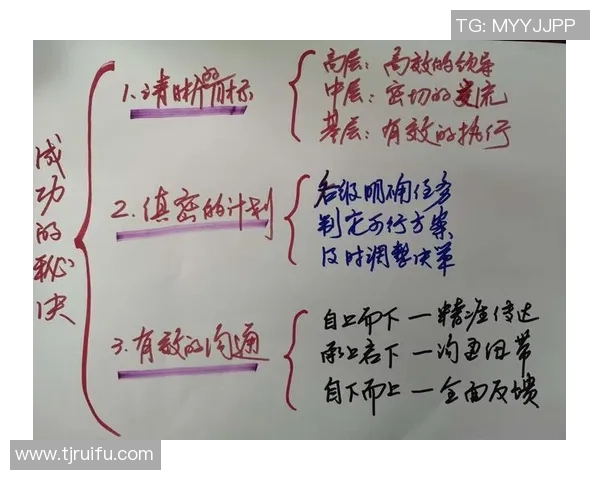 TG: MYYJJPP
成功的秘决
1.清晰的目标
高层：高效的领导
中层：密切的交流
基层：有效的执行
2.缜密的计划
各级明确任务
制定可行方案
及时调整决策
3.有效的沟通
自上而下—精准传达
承上启下—沟通纽带
自下而上—全面反馈
www.tjruifu.com